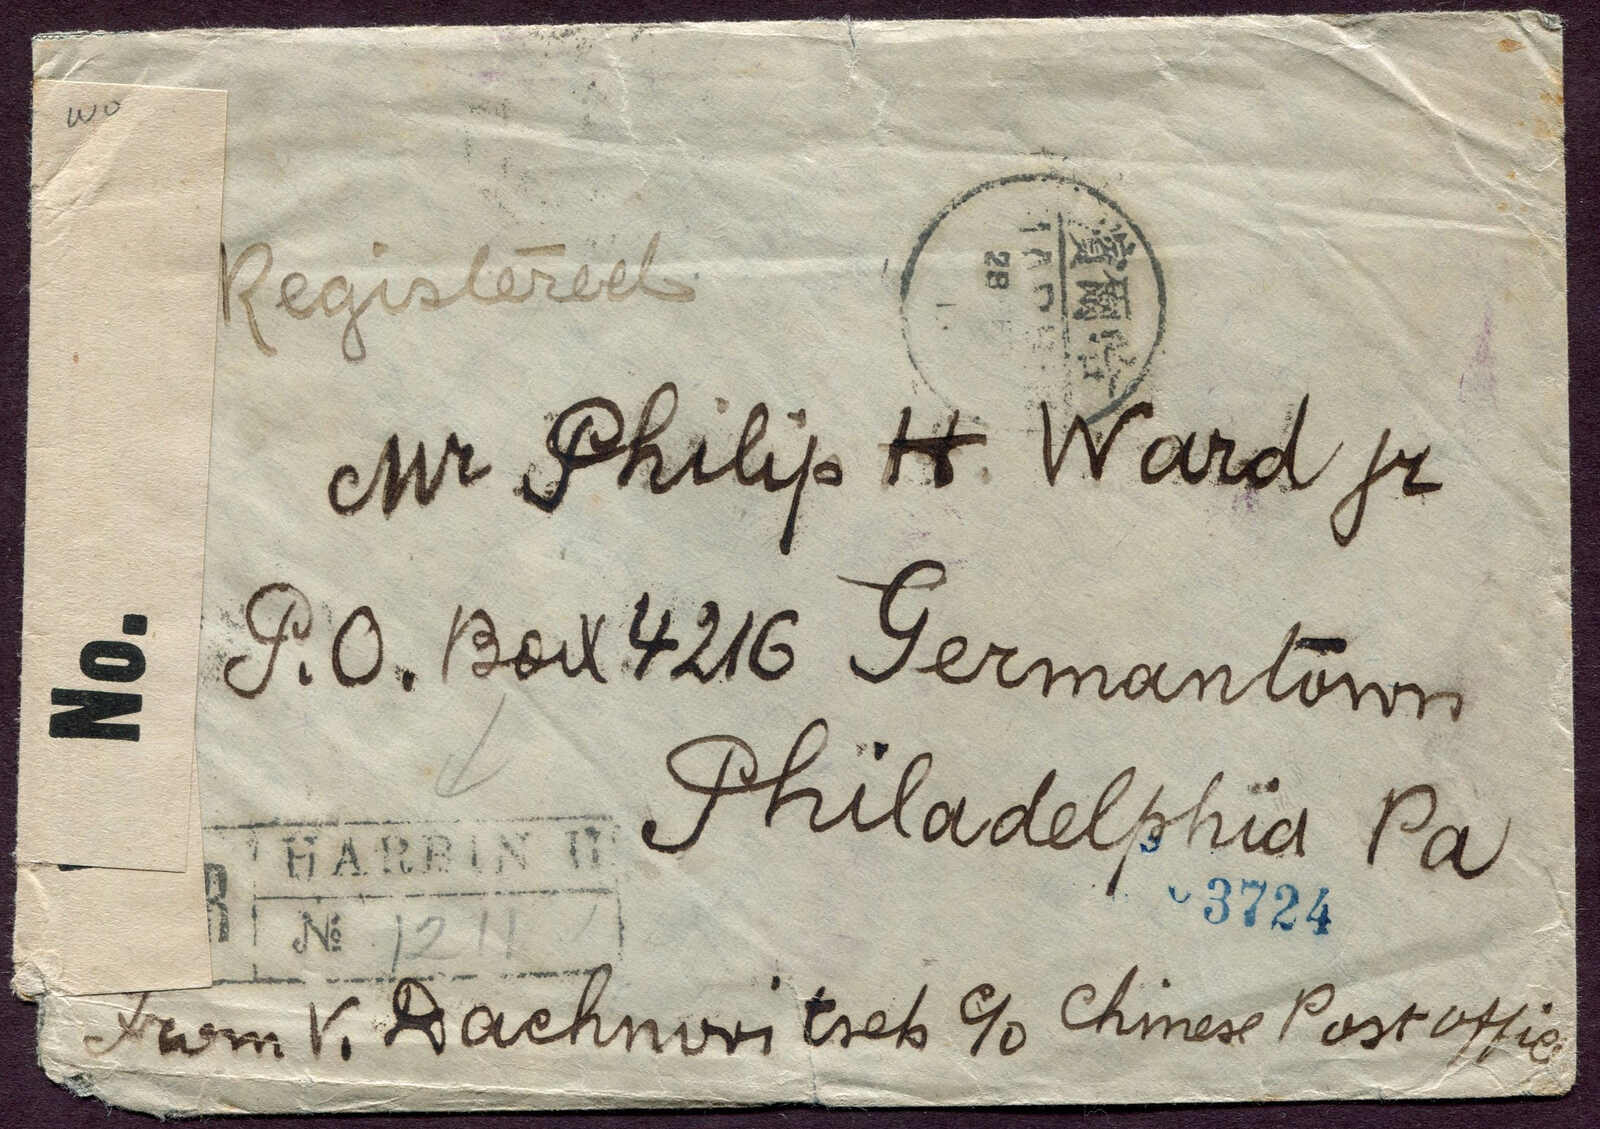 wo
Registered
Mr Philip H. Ward jr
P.O. Box 4216 Germantown
Philadelphia Pa
3724
No.
R
HARBIN II
№ 1211
From V. Dachnovitsch c/o Chinese Post office
28